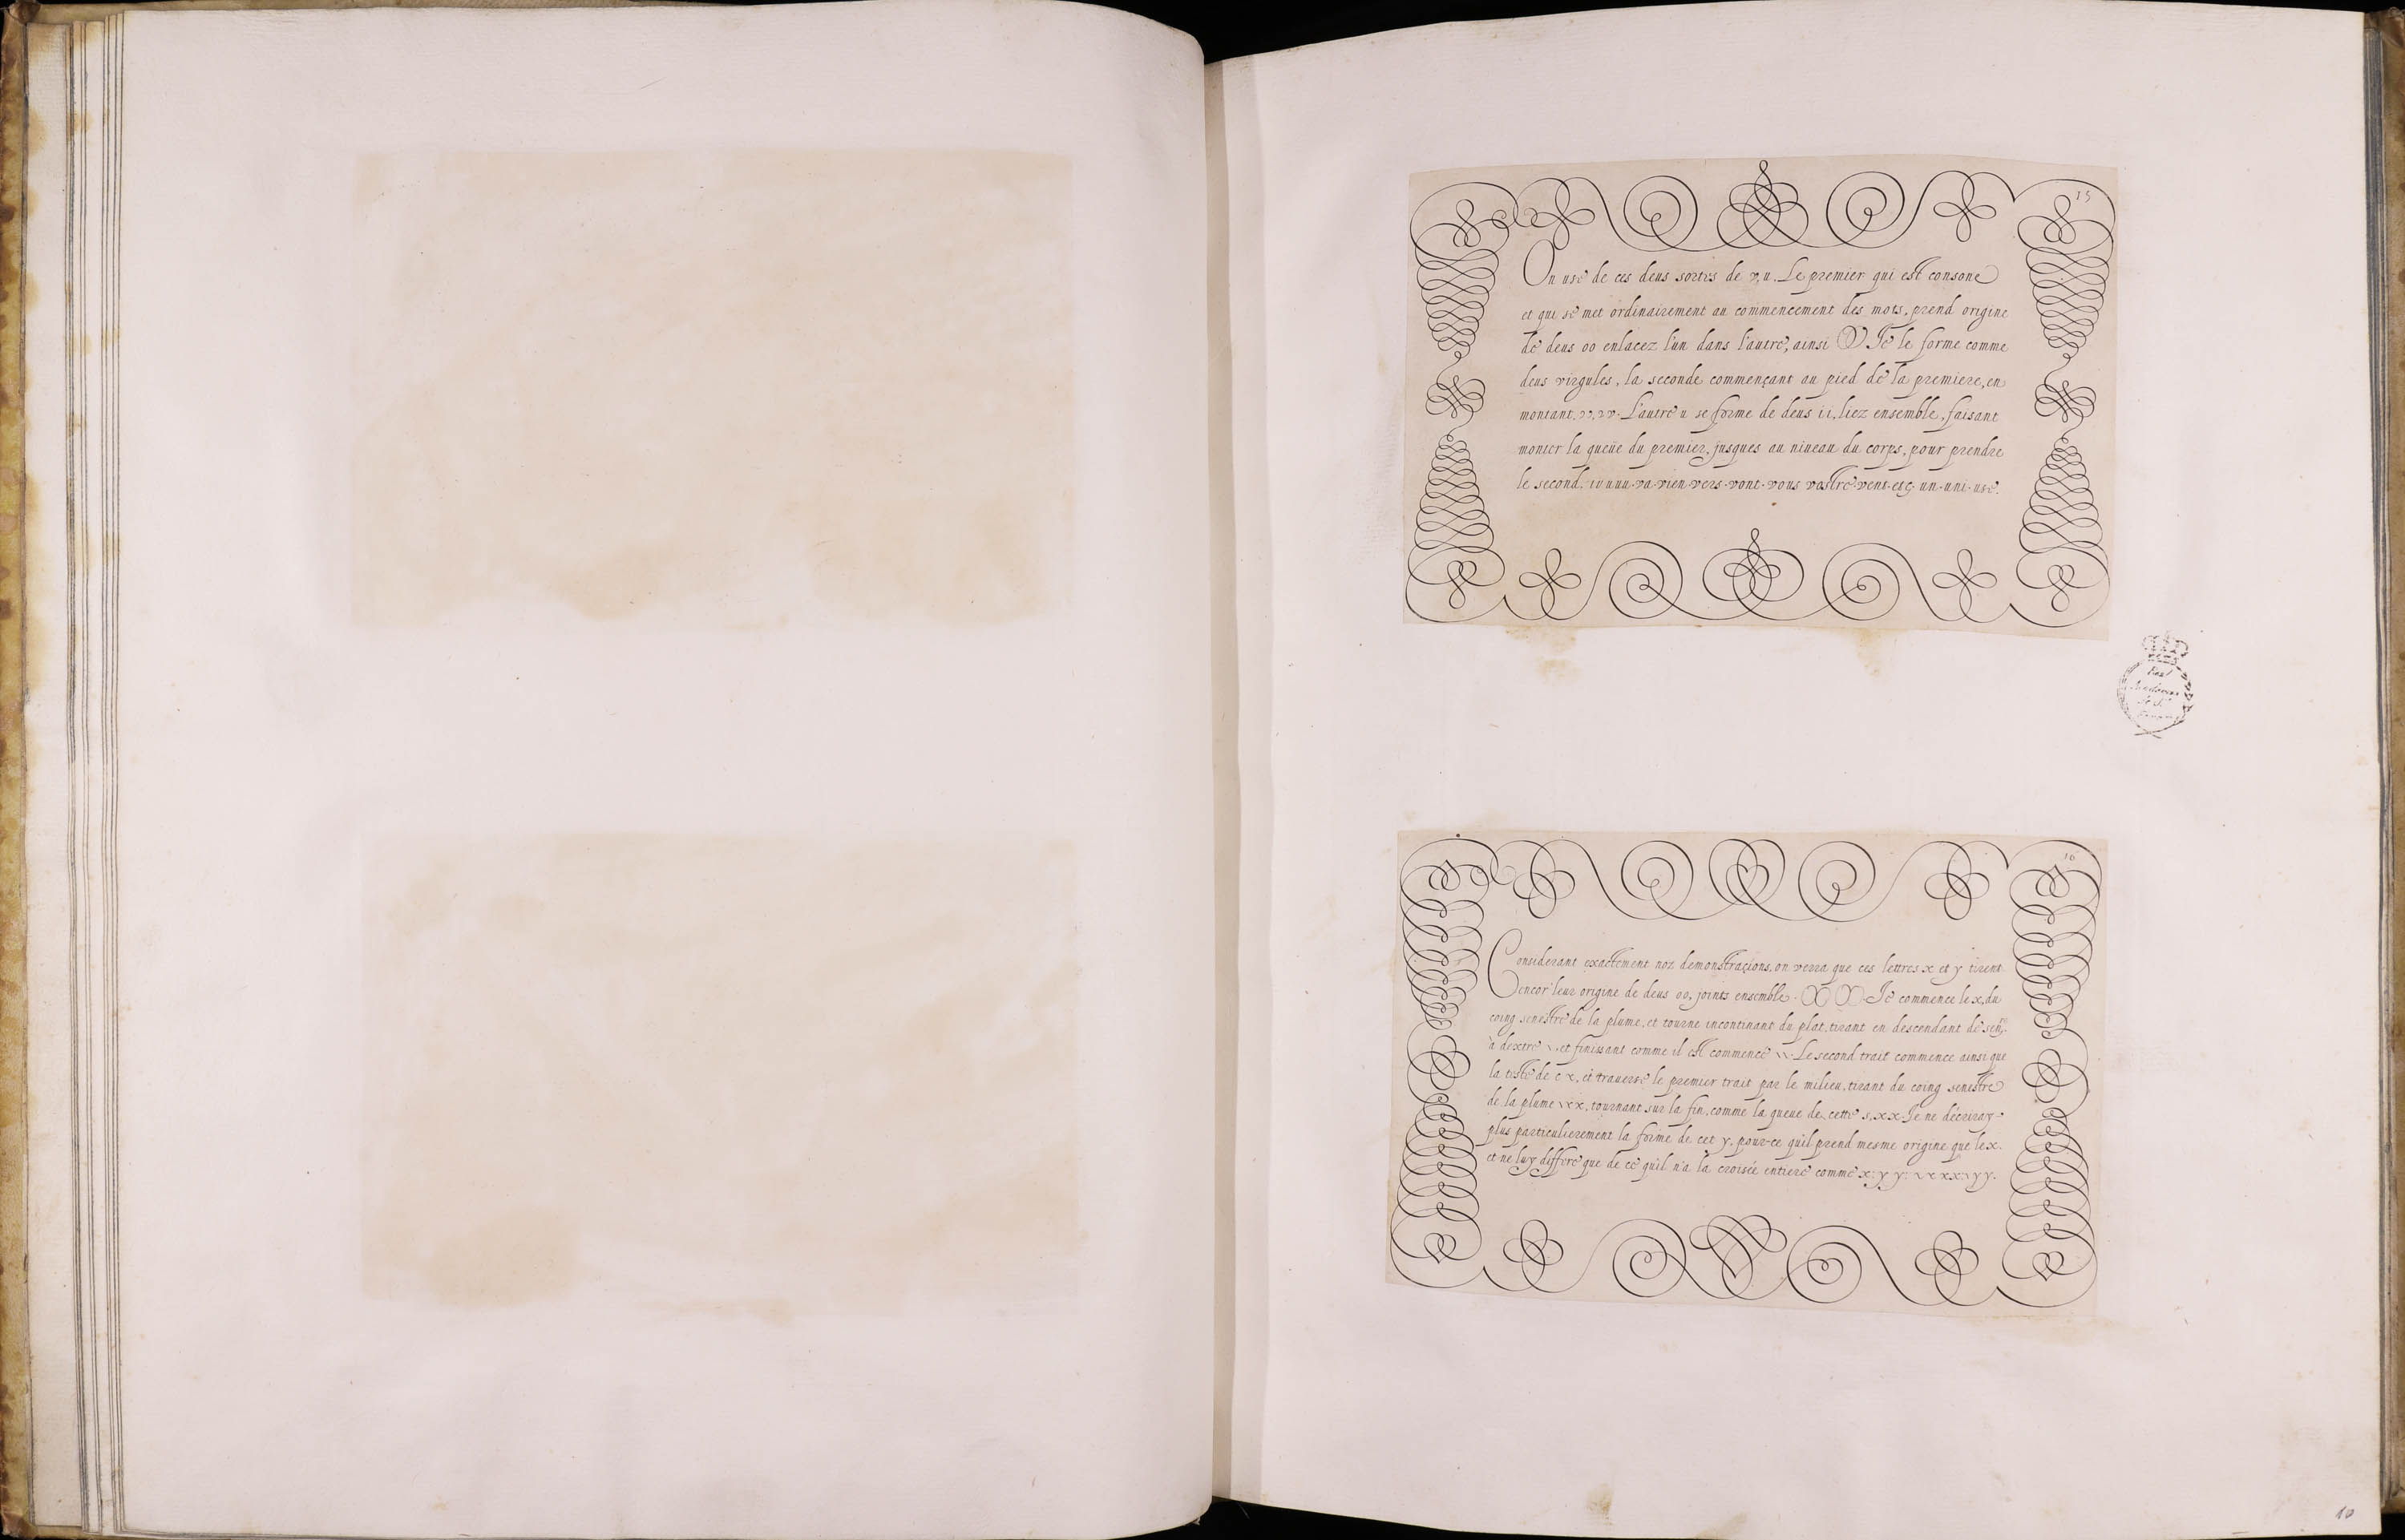 15
On use de ces deus sortes de v, u. Le premier qui est consone
et qui se met ordinairement au commencement des mots, prend origine
de deus oo enlacez l'un dans l'autre, ainsi Je le forme comme
deus virgules, la seconde commençant au pied de la premiere, en
montant. L'autre u se forme de deus ii, liez ensemble, faisant
monter la queüe du premier, jusques au niveau du corps, pour prendre
le second. va. vien. vers. vont. vous vostre. vent. etc. un. uni. use.
Real
16
Considerant exactement noz demonstraçions, on verra que ces lettres x et y tirent
encor' leur origine de deus oo, joints ensemble. Je commence le x, du
coing senestre de la plume, et tourne incontinant du plat, tirant en descendant de
à dextre et finissant comme il est commencé Le second trait commence ainsi que
la teste de c x, et traverse le premier trait par le milieu, tirant du coing senestre
de la plume x, tournant sur la fin, comme la queue de cette s, x x. Je ne décriray
plus particulierement la forme de cet y, pour-ce qu'il prend mesme origine que le x.
et ne luy differe que de ce qu'il n'a la croisée entiere comme x: y y: x x: y y.
10